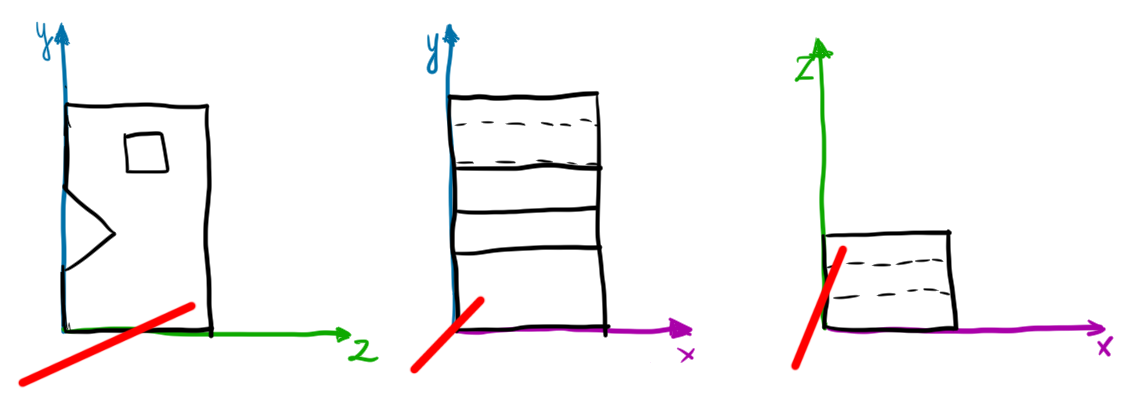 y
z
y
x
z
x